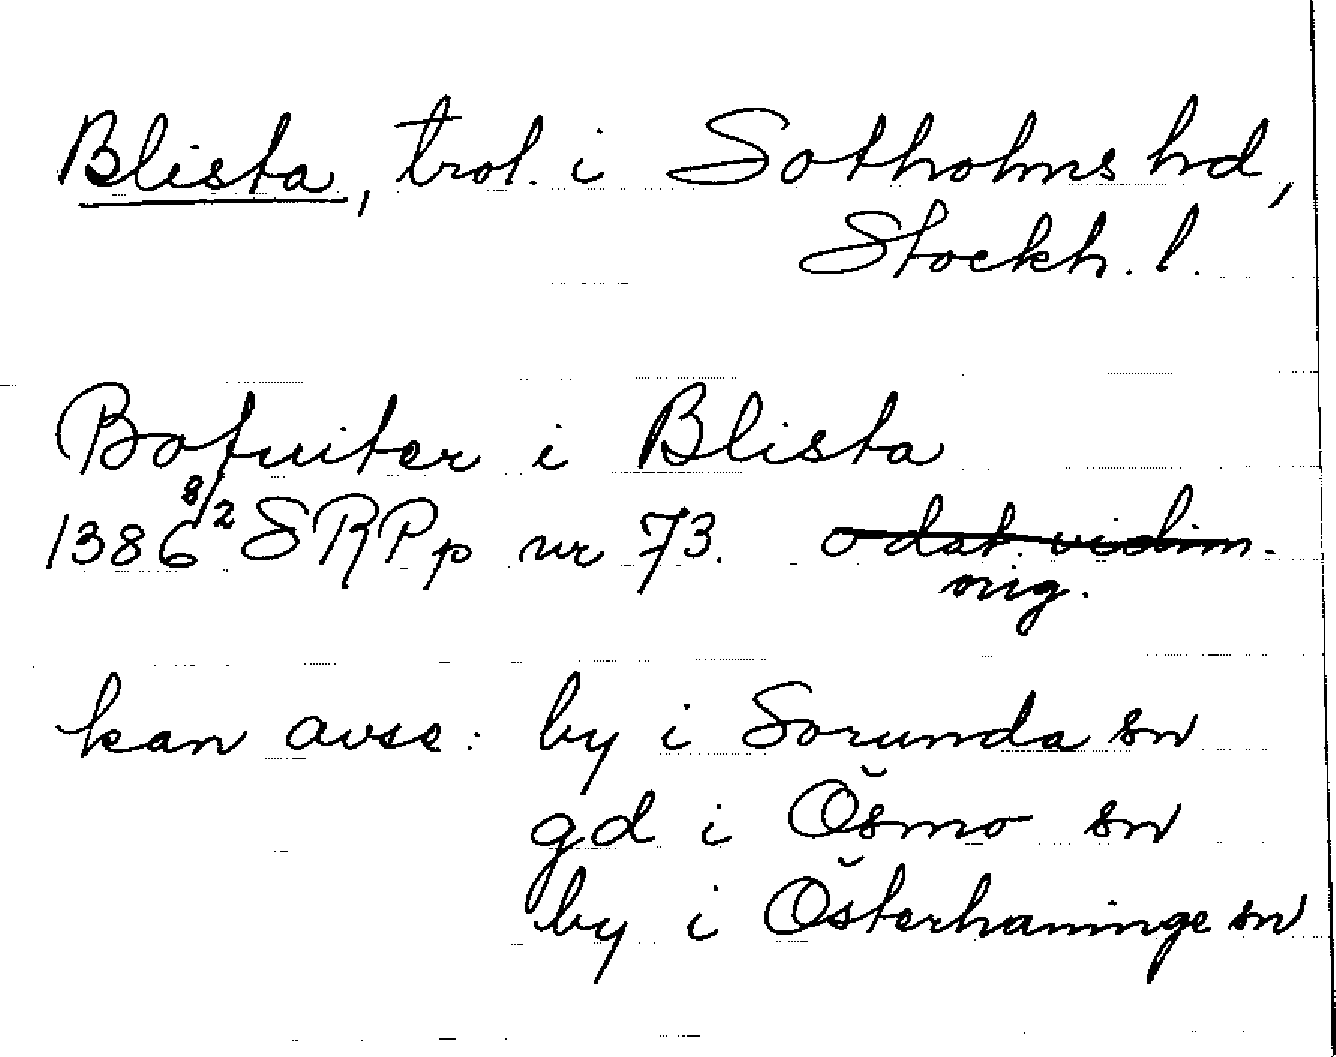 Blista, trol. i Sotholms hd,
Stockh. l.
Bofuiter i Blista
1386 8/2 SRPp nr 73. odat. vidim.
orig.
kan avse: by i Sorunda sn
gd i Ösmo sn
by i Österhaninge sn